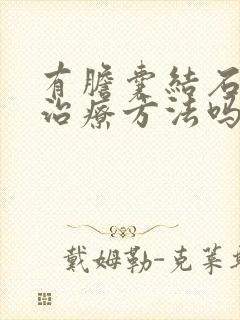 有膽囊結石
治療方法吗
戴姆勒-克莱斯